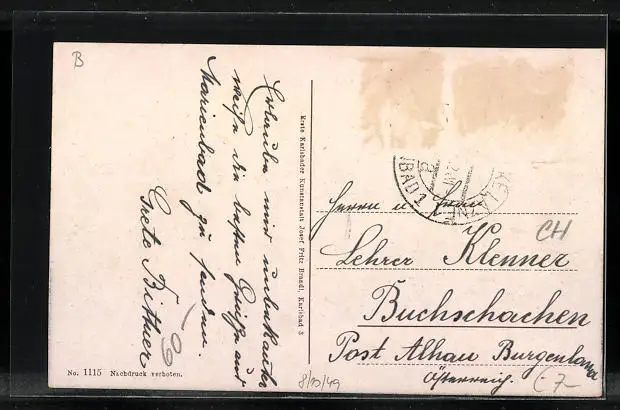 B
Erlaube mir unbekannter
weise die besten Grüße aus
Marienbad zu senden.
Grete Bittner
No. 1115 Nachdruck verboten.
Erste Karlsbader Kunstanstalt Josef Fritz Brandl, Karlsbad 3
NBAD 1
Herrn u. Frau
Lehrer Klenner
CH
Buchschachen
Post Alhau Burgenland
Österreich.
8/10/49